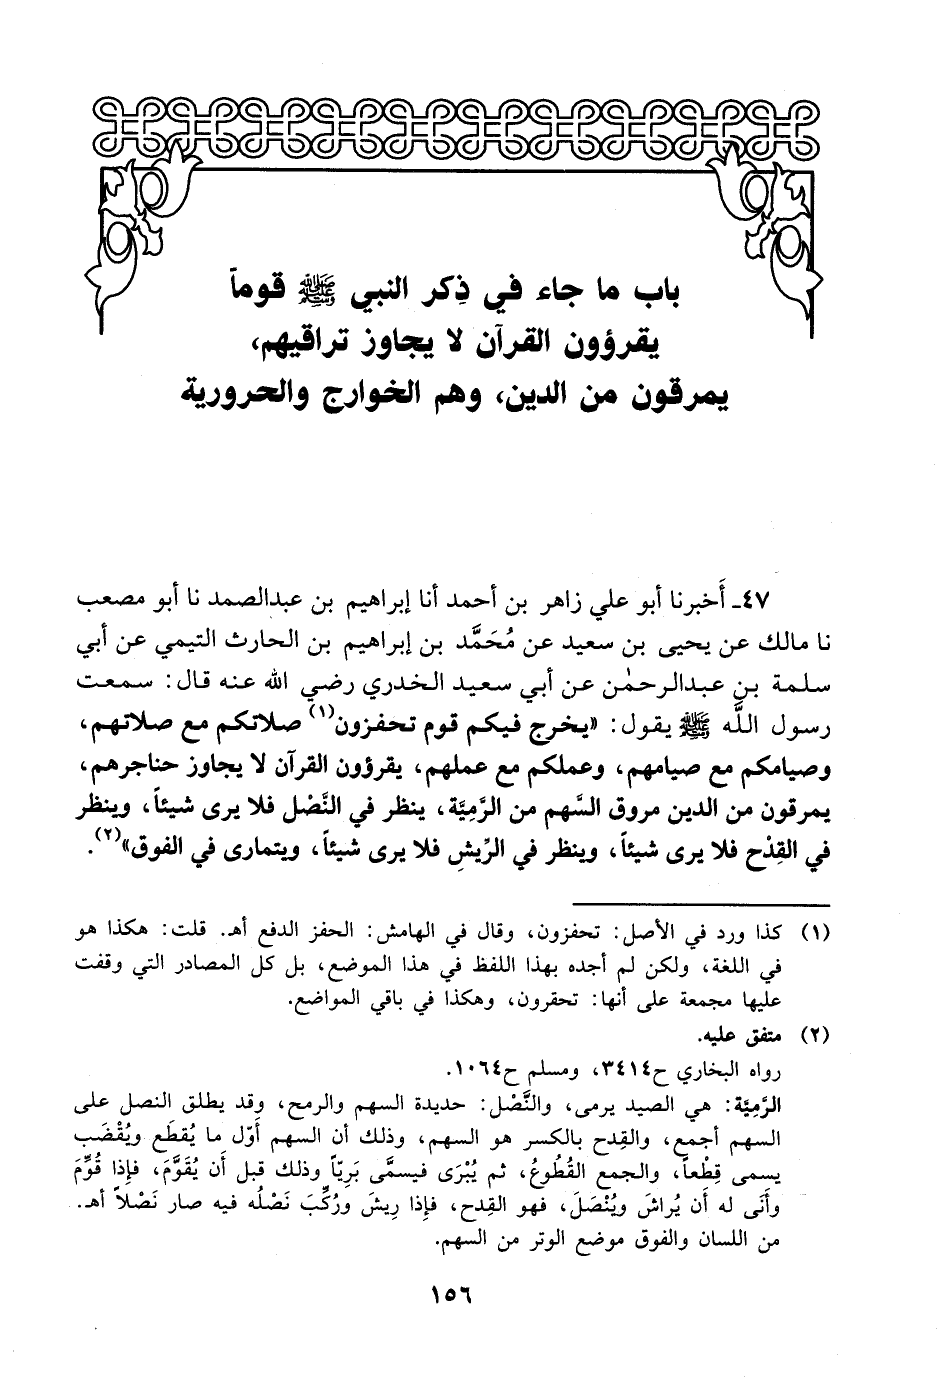 باب ما جاء في ذِكر النبي ﷺ قوماً
يقرؤون القرآن لا يجاوز تراقيهم،
يمرقون من الدين، وهم الخوارج والحرورية
٤٧ـ أَخبرنا أبو علي زاهر بن أحمد أنا إبراهيم بن عبدالصمد نا أبو مصعب
نا مالك عن يحيى بن سعيد عن مُحَمَّد بن إبراهيم بن الحارث التيمي عن أبي
سلمة بن عبدالرحمٰن عن أبي سعيد الخدري رضي الله عنه قال: سمعت
رسول اللَّه ﷺ يقول: «يخرج فيكم قوم تحفزون(١) صلاتكم مع صلاتهم،
وصيامكم مع صيامهم، وعملكم مع عملهم، يقرؤون القرآن لا يجاوز حناجرهم،
يمرقون من الدين مروق السَّهم من الرَّمِيَّة، ينظر في النَّصْل فلا يرى شيئاً، وينظر
في القِدْح فلا يرى شيئاً، وينظر في الرِّيشِ فلا يرى شيئاً، ويتمارى في الفوق»(٢).
(١) كذا ورد في الأصل: تحفزون، وقال في الهامش: الحفز الدفع أهـ. قلت: هكذا هو
في اللغة، ولكن لم أجده بهذا اللفظ في هذا الموضع، بل كل المصادر التي وقفت
عليها مجمعة على أنها: تحقرون، وهكذا في باقي المواضع.
(٢) متفق عليه.
رواه البخاري ح٣٤١٤، ومسلم ح١٠٦٤.
الرَّمِيَّة: هي الصيد يرمى، والنَّصْل: حديدة السهم والرمح، وقد يطلق النصل على
السهم أجمع، والقِدح بالكسر هو السهم، وذلك أن السهم أَوّل ما يُقطَع ويُقْضَب
يسمى قِطْعاً، والجمع القُطُوعُ، ثم يُبْرَى فيسمَّى بَرِيّاً وذلك قبل أَن يُقَوَّمَ، فإِذا قُوِّمَ
وأَنى له أَن يُراشَ ويُنْصَلَ، فهو القِدح، فإِذا رِيشَ ورُكِّبَ نَصْلُه فيه صار نَصْلاً أهـ.
من اللسان والفوق موضع الوتر من السهم.
١٥٦